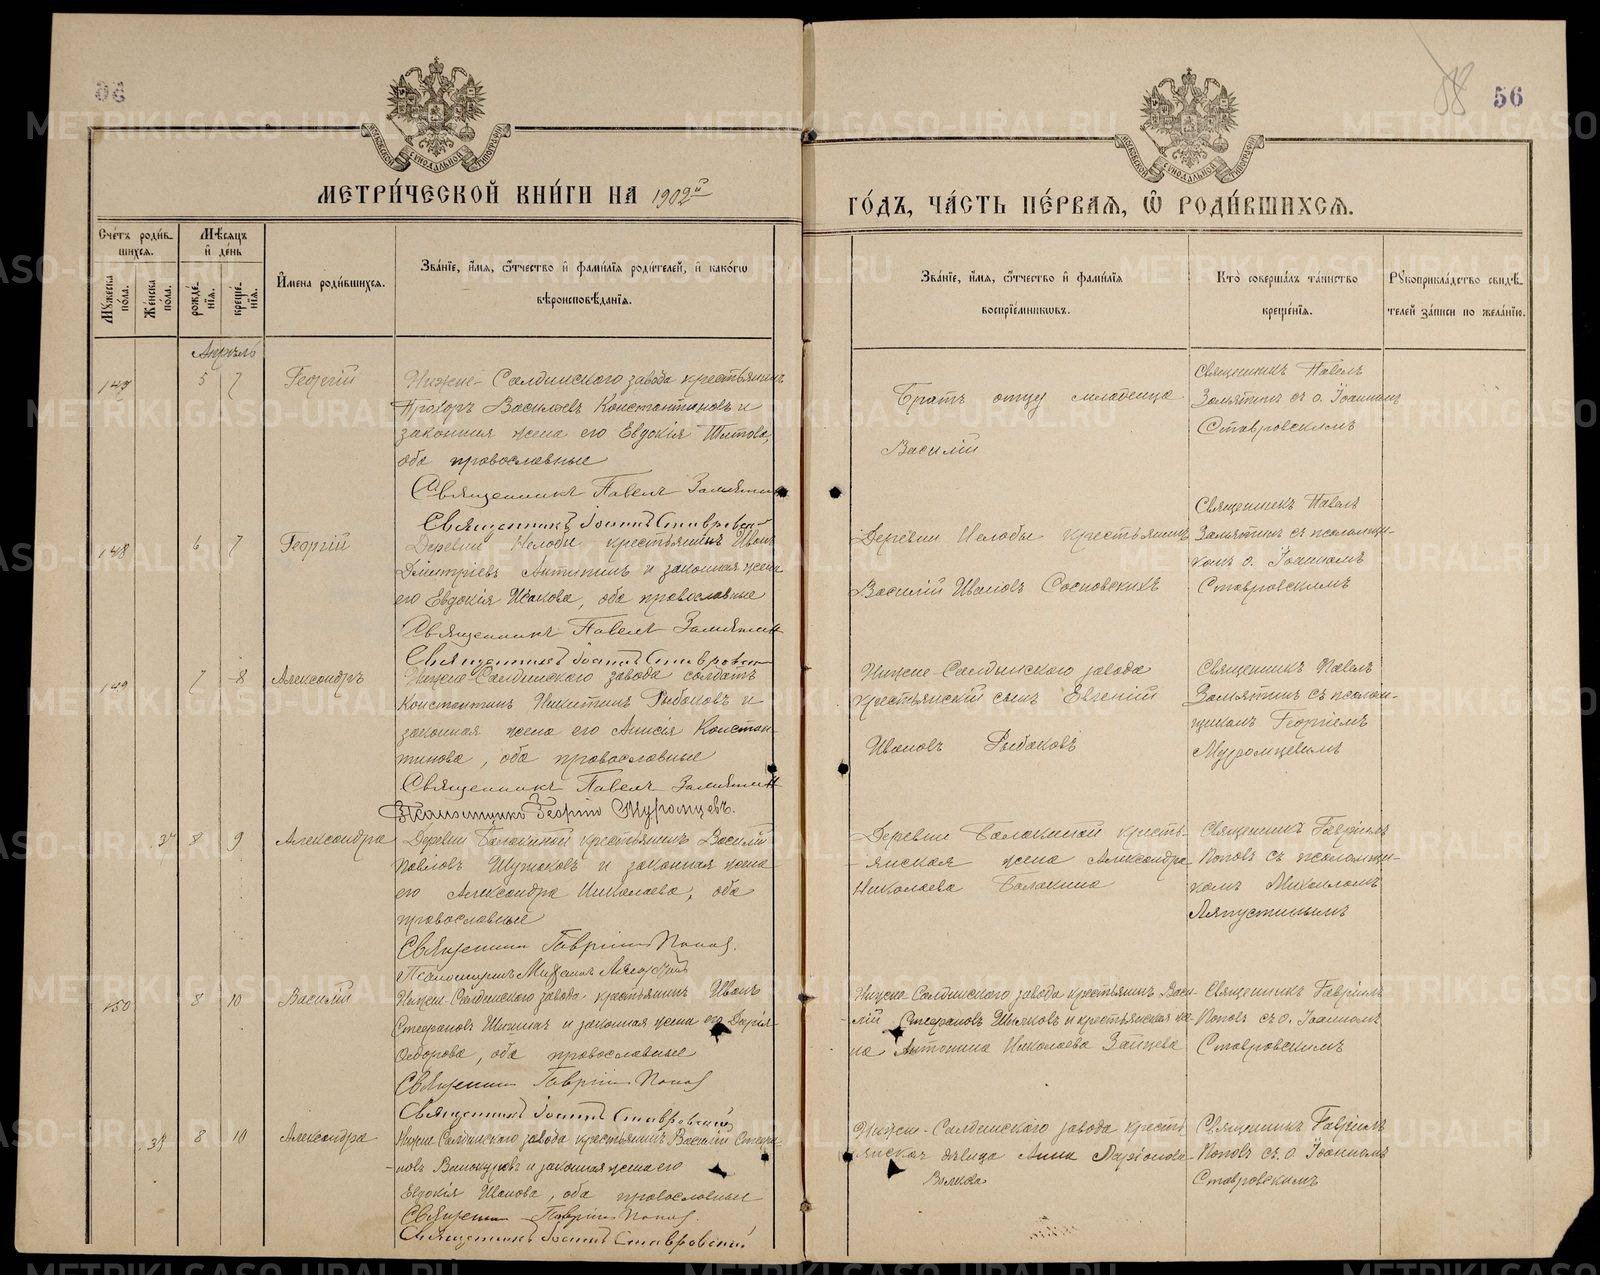 56
58
56
МОСКОВСКОЙ СѴНОДАЛЬНОЙ ТИПОГРАФІИ
МОСКОВСКОЙ СѴНОДАЛЬНОЙ ТИПОГРАФІИ
МЕТРИ́ЧЕСКОЙ КНИ́ГИ НА 1902й
ГО́ДЪ, ЧА́СТЬ ПЕ́РВАѦ, Ѡ҆ РОДИ́ВШИХСѦ.
Сче́тъ роди́в-
шихсѧ.
Мѣ́сѧцъ
и҆ де́нь
Мꙋжеска пола.
Женска пола.
рожде́-нїѧ.
креще́-нїѧ.
И҆мена роди́вшихсѧ.
Зва́нїе, и҆́мѧ, ѻ҆́тчество и҆ фами́лїѧ роди́телей, и҆ како́гѡ
вѣроисповѣ́данїѧ.
Зва́нїе, и҆́мѧ, ѻ҆́тчество и҆ фами́лїѧ
воспрїе́мникѡвъ.
Кто̀ соверша́лъ та́инство
креще́нїѧ.
Рꙋкоприкла́дство свидѣ́-
телей за́писи по жела́нїю.
Апрѣль
147 5 7 Георгій
Нижне-Салдинского завода крестьянинъ
Прохоръ Васильевъ Константиновъ и
законная жена его Евдокія Титова,
оба православные
Священникъ Павелъ Замятин
Священникъ Іоаннъ Ставровскій
Братъ отцу младенца
Василій
Священникъ Павелъ
Замятинъ съ о. Іоанномъ
Ставровскимъ
148 6 7 Георгій
Деревни Нелобы крестьянинъ Иванъ
Дмитріевъ Антипинъ и законная жена
его Евдокія Исакова, оба православные
Священникъ Павелъ Замятин
Священникъ Іоаннъ Ставровскій
Деревни Нелобы крестьянинъ
Василій Ивановъ Сосновскихъ
Священникъ Павелъ
Замятинъ съ псаломщи-
комъ о. Іоанномъ
Ставровскимъ
149 7 8 Александръ
Нижне-Салдинского завода солдатъ
Константинъ Никитинъ Рыбаковъ и
законная жена его Анисія Констан-
тинова, оба православные
Священникъ Павелъ Замятин
Псаломщикъ Георгій Муромцевъ.
Нижне-Салдинского завода
крестьянскій сынъ Евгеній
Ивановъ Рыбаковъ
Священникъ Павелъ
Замятинъ съ псалом-
щикомъ Георгіемъ
Муромцевымъ
8 9 Александра
Деревни Балакиной крестьянинъ Василій
Павловъ и законная жена
его Александра Николаева, оба
православные
Священник Гавріил Попов.
Псаломщикъ Михаилъ
Деревни Балакиной кресть-
янская жена Александра
Николаева Балакина
Священникъ Гавріилъ
Поповъ съ псаломщи-
комъ Михаиломъ
Ляпустинымъ
150 8 10 Василій
Нижне-Салдинского завода крестьянинъ Иванъ
Стефановъ и законная жена его Дарія
Ѳедорова, оба православные
Священник Гавріил Попов
Священникъ Іоаннъ Ставровскій
Нижне-Салдинского завода крестьянинъ Васи-
лій Стефановъ и крестьянская же-
на Антонина Николаева Зайцева
Священникъ Гавріилъ
Поповъ съ о. Іоанномъ
Ставровскимъ
8 10 Александра
Нижне-Салдинского завода крестьянинъ Василій Стефа-
новъ Винокуровъ и законная жена его
Евдокія Иванова, оба православные
Священник Гавріил Попов.
Священникъ Іоаннъ Ставровскій
Нижне-Салдинского завода кресть-
янская дѣвица Анна Ларіонова
Волкова
Священникъ Гавріилъ
Поповъ съ о. Іоанномъ
Ставровскимъ
METRIKI.GASO-URAL.RU